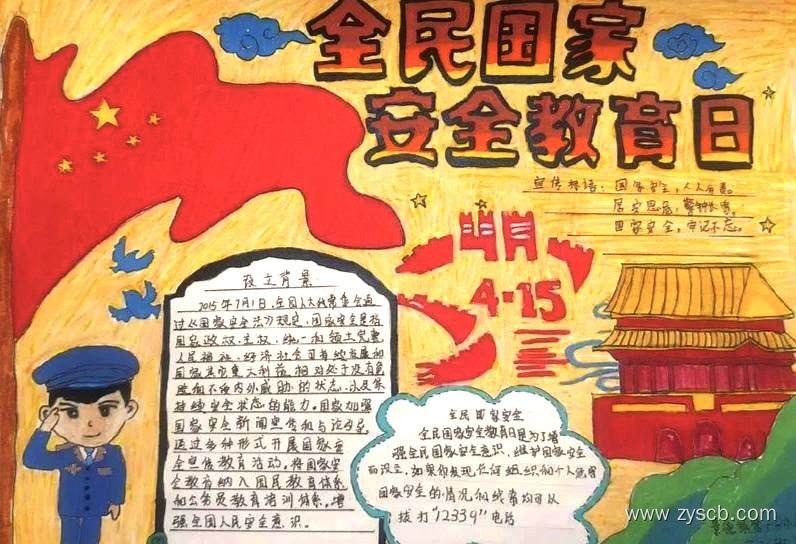 全民国家
安全教育日
宣传标语：国家安全，人人有责。
居安思危，警钟长鸣。
国家安全，牢记不忘。
明月
4·15
设立背景
2015年7月1日，全国人大常委会通
过《国家安全法》规定，国家安全是指
国家政权、主权、统一和领土完整
人民福祉、经济社会可持续发展和
国家其它重大利益相对处于没有危
险和不受内外威胁的状态，以及保
障持续安全状态的能力。国家加强
国家安全新闻宣传和与论引导
通过多种形式开展国家安
全宣传教育活动，将国家安
全教育纳入国民教育体系
和公务员教育培训体系，增
强全国人民安全意识。
全民国家安全
全民国家安全教育日是为了增
强全民国家安全意识，维护国家安全
而设立，如果你发现任何组织和个人危害
国家安全的情况和线索均可以
拨打"12339"电话
www.zyscb.com